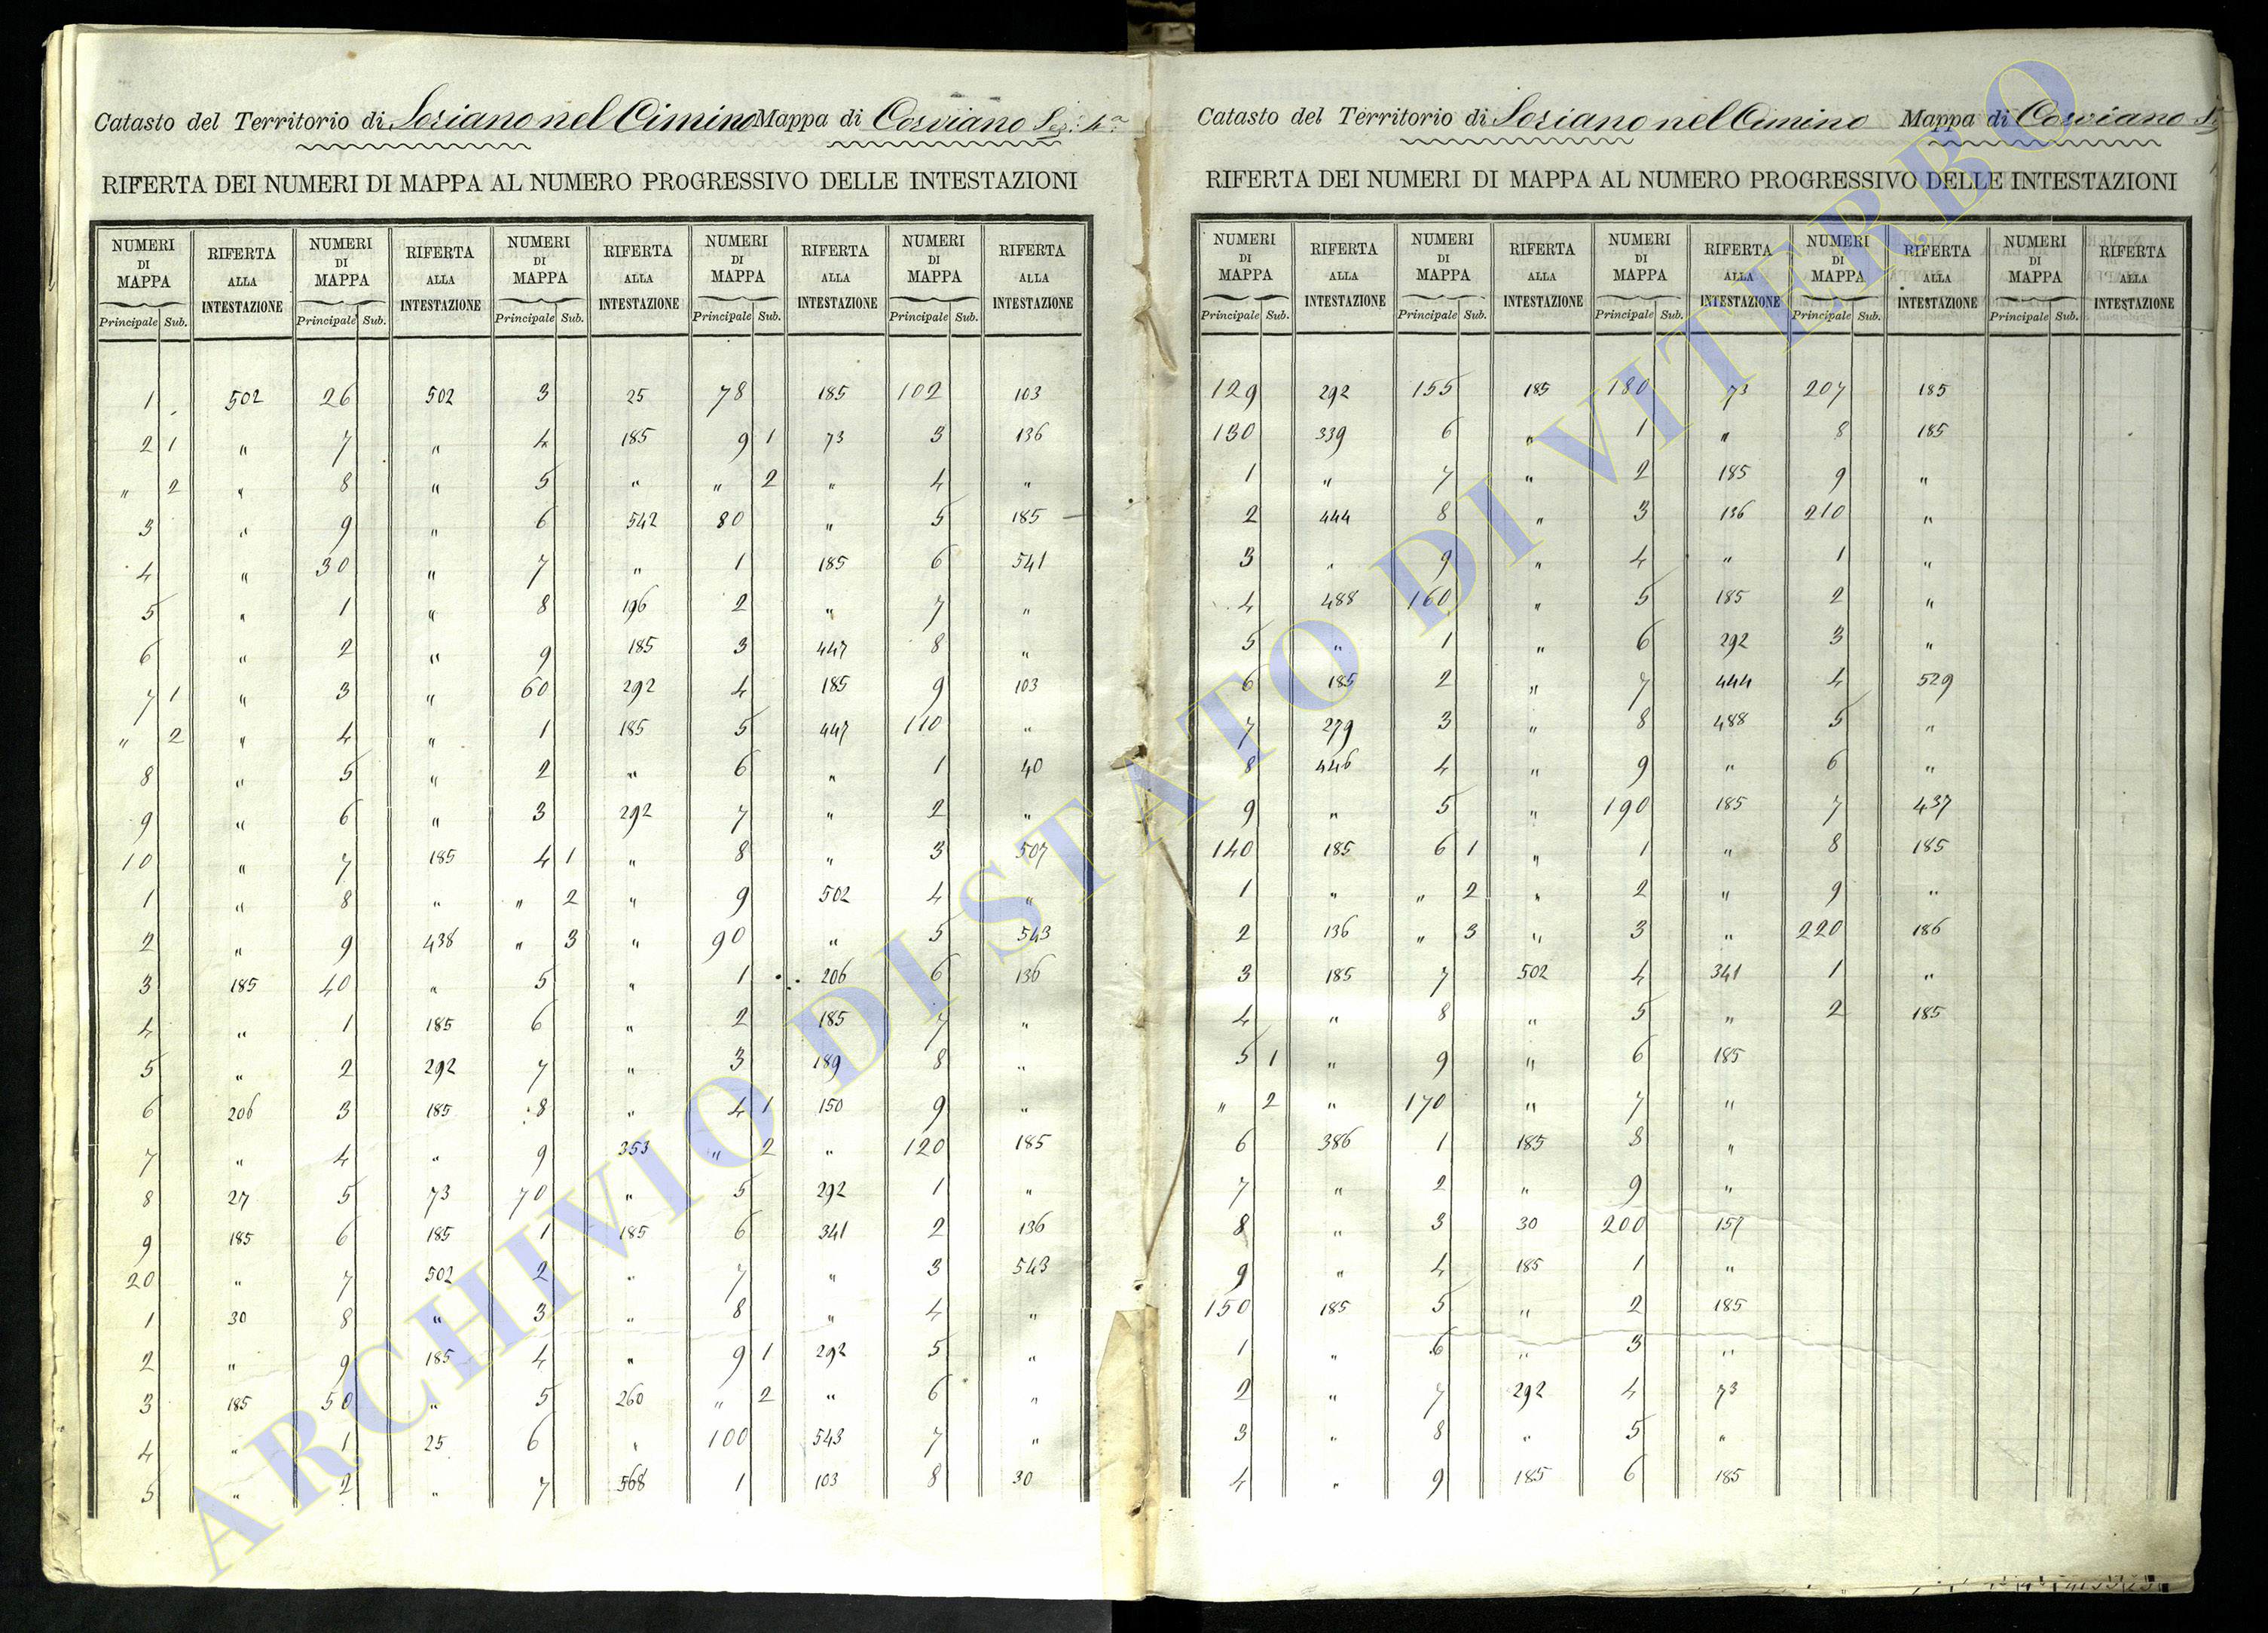 Catasto del Territorio di Soriano nel Cimino Mappa di Corviano Sez. 4ª
RIFERTA DEI NUMERI DI MAPPA AL NUMERO PROGRESSIVO DELLE INTESTAZIONI
NUMERI DI MAPPA RIFERTA ALLA INTESTAZIONE NUMERI DI MAPPA RIFERTA ALLA INTESTAZIONE NUMERI DI MAPPA RIFERTA ALLA INTESTAZIONE NUMERI DI MAPPA RIFERTA ALLA INTESTAZIONE NUMERI DI MAPPA RIFERTA ALLA INTESTAZIONE
Principale Sub. Principale Sub. Principale Sub. Principale Sub. Principale Sub.
1 502 26 502 3 25 78 185 102 103
2 1 " 7 " 4 185 9 1 73 3 136
" 2 " 8 " 5 " " 2 " 4 "
3 " 9 " 6 542 80 " 5 185
4 " 30 " 7 " 1 185 6 541
5 " 1 " 8 196 2 " 7 "
6 " 2 " 9 185 3 447 8 "
7 1 " 3 " 60 292 4 185 9 103
" 2 " 4 " 1 185 5 447 110 "
8 " 5 " 2 " 6 " 1 40
9 " 6 " 3 292 7 " 2 "
10 " 7 185 4 1 " 8 " 3 507
1 " 8 " " 2 " 9 502 4 "
2 " 9 438 " 3 " 90 " 5 543
3 185 40 " 5 " 1 206 6 136
4 " 1 185 6 " 2 185 7 "
5 " 2 292 7 " 3 189 8 "
6 206 3 185 8 " 4 1 150 9 "
7 " 4 " 9 353 " 2 " 120 185
8 27 5 73 70 " 5 292 1 "
9 185 6 185 1 185 6 341 2 136
20 " 7 502 2 " 7 " 3 543
1 30 8 " 3 " 8 " 4 "
2 " 9 185 4 " 9 1 292 5 "
3 185 50 " 5 260 " 2 " 6 "
4 " 1 25 6 " 100 543 7 "
5 " 2 " 7 568 1 103 8 30
Catasto del Territorio di Soriano nel Cimino Mappa di Corviano
RIFERTA DEI NUMERI DI MAPPA AL NUMERO PROGRESSIVO DELLE INTESTAZIONI
NUMERI DI MAPPA RIFERTA ALLA INTESTAZIONE NUMERI DI MAPPA RIFERTA ALLA INTESTAZIONE NUMERI DI MAPPA RIFERTA ALLA INTESTAZIONE NUMERI DI MAPPA RIFERTA ALLA INTESTAZIONE NUMERI DI MAPPA RIFERTA ALLA INTESTAZIONE
Principale Sub. Principale Sub. Principale Sub. Principale Sub. Principale Sub.
129 292 155 185 180 73 207 185
130 339 6 " 1 " 8 185
1 " 7 " 2 185 9 "
2 444 8 " 3 136 210 "
3 " 9 " 4 " 1 "
4 488 160 " 5 185 2 "
5 " 1 " 6 292 3 "
6 185 2 " 7 444 4 529
7 279 3 " 8 488 5 "
8 446 4 " 9 " 6 "
9 " 5 " 190 185 7 437
140 185 6 1 " 1 " 8 185
1 " " 2 " 2 " 9 "
2 136 " 3 " 3 " 220 186
3 185 7 502 4 341 1 "
4 " 8 " 5 " 2 185
5 1 " 9 " 6 185
" 2 " 170 " 7 "
6 386 1 185 8 "
7 " 2 " 9 "
8 " 3 30 200 157
9 " 4 185 1 "
150 185 5 " 2 185
1 " 6 " 3 "
2 " 7 292 4 73
3 " 8 " 5 "
4 " 9 185 6 185
ARCHIVIO DI STATO DI VITERBO